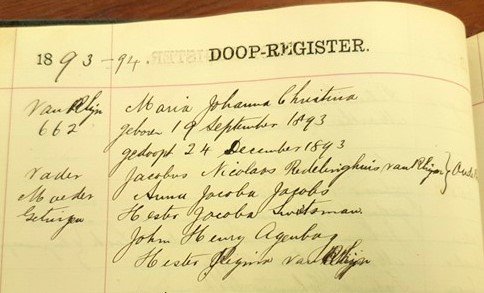 1893-94. DOOP-REGISTER.
van Rhijn Maria Johanna Christina
662 geboren 19 September 1893
gedoopt 24 December 1893
Vader Jacobus Nicolaas Redelinghuis van Rhijn }
Moeder Anna Jacoba Jacobs
Getuigen Hester Jacoba Switsman
John Henry Agenbag
Hester Regina van Rhijn